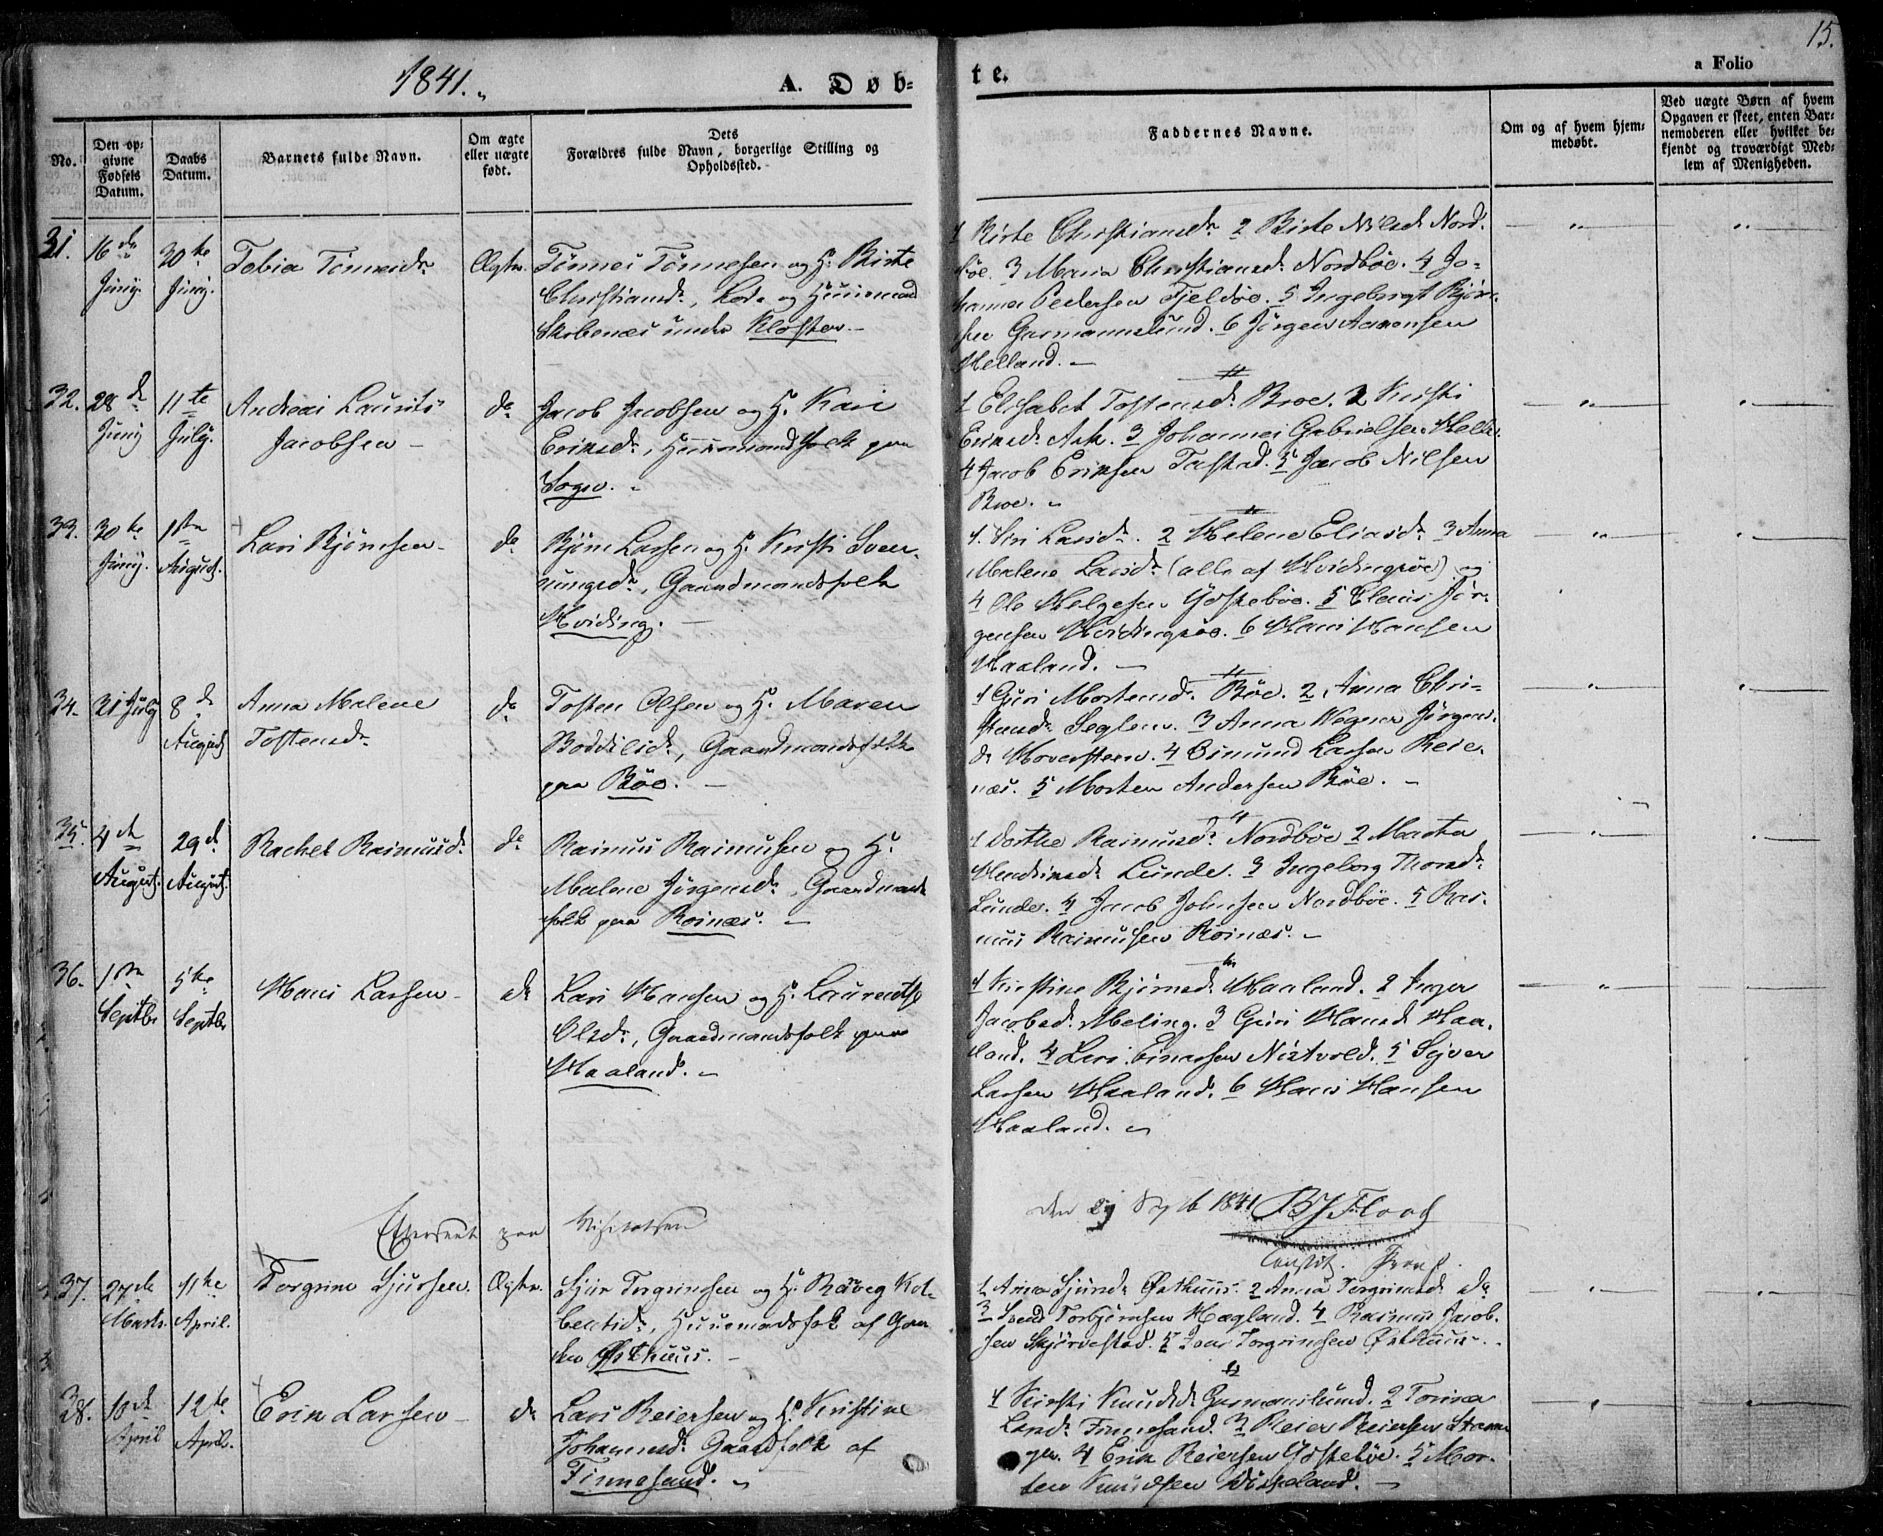 1841.
A. Døbte.
a Folio
15.
No.
Den opgivne Fødsels Datum.
Daabs Datum.
Barnets fulde Navn.
Om ægte eller uægte født.
Dets Forældres fulde Navn, borgerlige Stilling og Opholdssted.
Faddernes Navne.
Om og af hvem hjemmedøbt.
Ved uægte Børn af hvem Opgaven er skeet, enten Barnemoderen eller hvilket bekjendt og troværdigt Medlem af Menigheden.
31.
16de Juny.
30te Juny.
Tobia Tønnesdr
Ægte.
Tønnes Tønnesen og H. Birte
Christiansdr, Lods og Huusmand
Skobenæs under Kloster.
1 Birte Christiansdr 2 Birte Nilsdr Nord-
bøe. 3 Maria Christiansdr Nordbøe. 4 Jo-
hannes Pedersen Fjeldøe. 5 Ingebregt Bjør-
sen Garmannslund. 6 Jørgen Aanensen
Helland.
32.
28de Juny
11te July.
Andreas Laurits
Jacobsen
do
Jacob Jacobsen og H. Kari
Eriksdr, Huusmandsfolk paa
Sogn.
1 Elisabet Tostensdr Broe. 2 Kirsti
Eriksdr Ask. 3 Johannes Gabrielsen Helle.
4 Jacob Eriksen Tastad. 5 Jacob Nilsen
Broe.
33.
30te Juny.
1ste August.
Lars Bjørnsen
do
Bjørn Larsen og H. Kirsti Sven-
nungsdr, Gaardmandsfolk
Hviding.
1. Siri Larsdr. 2 Helene Eliasdr 3 Anna
Malene Larsdr (alle af Hvidingsøe) og
4 Ole Helgesen Gostebøe. 5 Claus Jør-
gensen Hvidingsøe. 6 Hans Hansen
Haaland.
34.
21 July
8de August
Anna Malene
Tostensdr
do
Tosten Olsen og H. Maren
Boddilsdr, Gaardmandsfolk
paa Bøe.
1 Guri Mortensdr Bøe. 2 Anna Chri-
stensdr Seglem. 3 Anna Wegner Jørgens-
dr Hoversteen. 4 Osmund Larsen Reie-
næs. 5 Morten Andersen Bøe.
35.
4de August.
29de August.
Rachel Rasmusdr
do
Rasmus Rasmusen og H.
Malene Jørgensdr, Gaardmands
folk paa Roinæs.
1 Dorthe Rasmusdr Nordbøe 2 Marta
Hendriksdr Lunde. 3 Ingeborg Thorsdr
Lunde. 4 Jacob Johnsen Nordbøe. 5 Ras-
mus Rasmusen Roinæs.
36.
1ste Septbr
5te Septbr
Hans Larsen
do
Lars Hansen og H. Laurentse
Olsdr, Gaardmandsfolk paa
Haaland.
1 Kirstine Bjørnsdr Haaland. 2 Inger
Jacobsdr Meling. 3 Guri Hansdr Haa-
land. 4 Lars Einersen Nistvold. 5 Sejver
Larsen Haaland. 6 Hans Hansen
Haaland.
Efterseet paa Visitatsen
den 29 Septb 1841 BJFlood
Constit. Provst.
37.
27de Marts.
11te April.
Torgrim Sjursen.
Ægte.
Sjur Torgrimsen og H. Raaveg Kol-
bentsdr, Huusmandsfolk af Gaar
den Østhuus.
1 Anna Sjursdr Østhuus. 2 Anna Torgrimsdr do
3 Svend Torbjørnsen Hagland. 4 Rasmus Jacob-
sen Skjørvestad. 5 Torgrimsen Østhuus.
38.
10de April
12te April.
Erik Larsen
do
Lars Reiersen og H. Kristine
Johannesdr Gaardfolk af
Finnesand.
1 Kirsti Knudsdr Garmanslund. 2 Torina
Larsdr Finnesand. 3 Reier Reiersen
4 Erik Reiersen Gostebøe. 5 Mor-
ten Knudsen